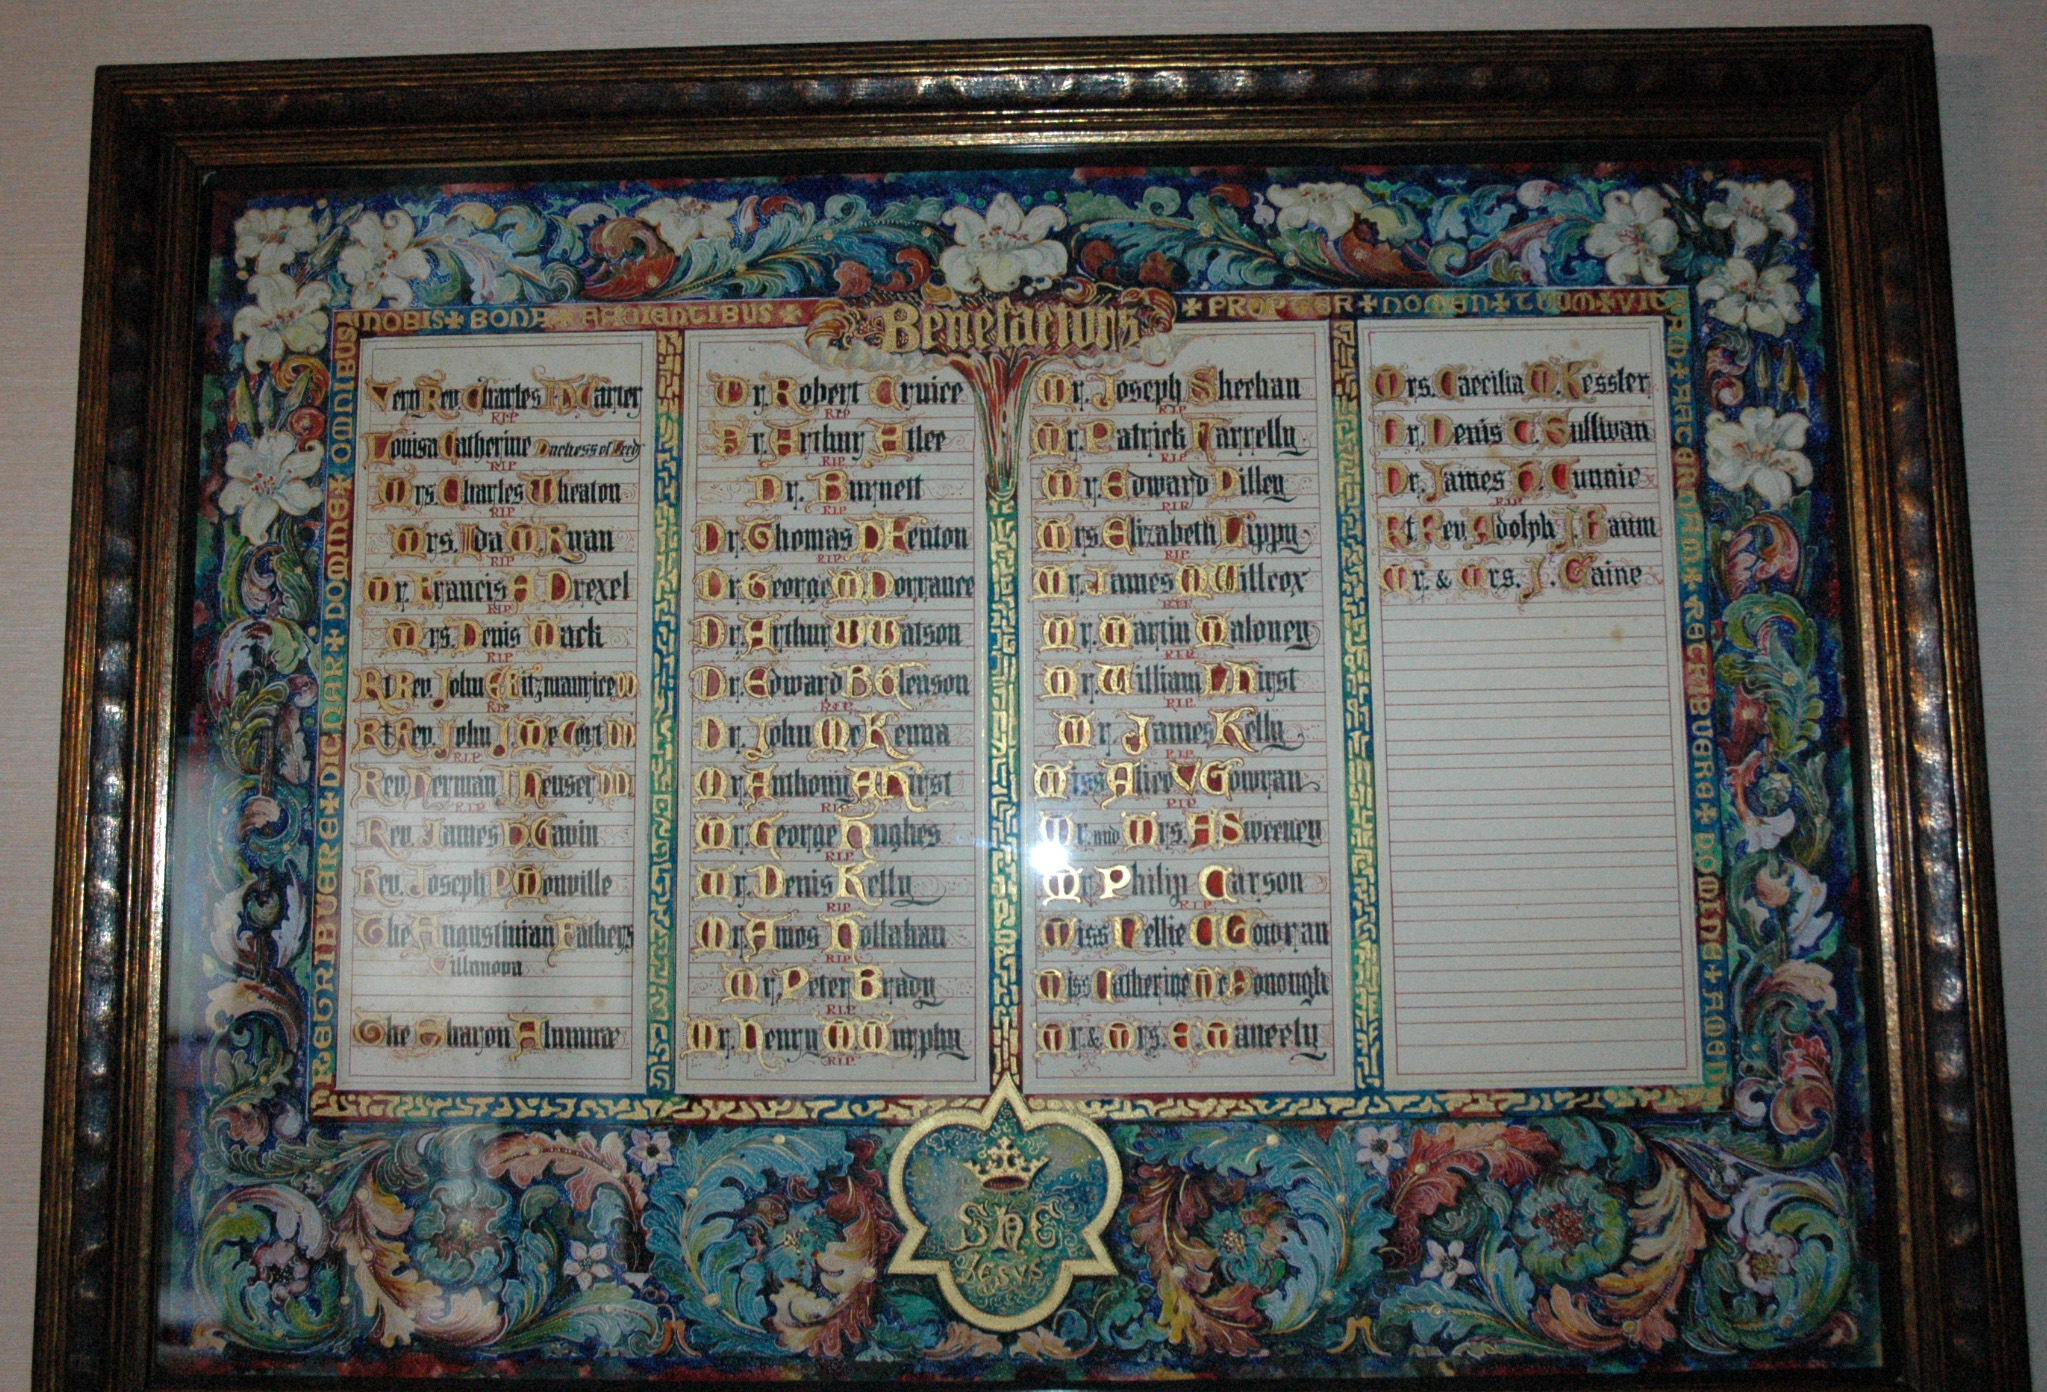 RETRIBUERE + DIGNAR + DOMINE + OMNIBUS
NOBIS + BONA + FACIENTIBUS +
Benefactors
+ PROPTER + NOMEN + TUUM + VIT
AM + AETERNAM + RETRIBUERE + DOMINE + AMEN
Very Rev Charles D Carter
R.I.P.
Louisa Catherine Duchess of Leeds
R.I.P.
Mrs. Charles Wheaton
R.I.P.
Mrs. Ida M. Ryan
R.I.P.
Mr. Francis A Drexel
R.I.P.
Mrs. Denis Mack
R.I.P.
Rt Rev. John E Fitzmaurice DD
R.I.P.
Rt Rev. John J. Mc Cort DD
R.I.P.
Rev. Herman J Heuser DD.
R.I.P.
Rev. James D. Gavin
Rev. Joseph P. Monville
The Augustinian Fathers
Villanova
The Sharon Alumnæ
Mr. Robert Cruice
R.I.P.
Dr. Arthur Atlee
R.I.P.
Dr. Burnett
R.I.P.
Dr. Thomas D Fenton
R.I.P.
Dr. George M Dorrance
Dr. Arthur W. Watson
Dr. Edward B Gleason
R.I.P.
Dr. John Mc Kenna
Mr. Anthony A Hirst
R.I.P.
Mr. George Hughes
R.I.P.
Mr. Denis Kelly
R.I.P.
Mr. Amos Hollahan
R.I.P.
Mr. Peter Brady
R.I.P.
Mr. Henry M. Murphy
R.I.P.
Mr. Joseph Sheehan
R.I.P.
Mr. Patrick Farrelly
R.I.P.
Mr. Edward Dilley
R.I.P.
Mrs. Elizabeth Lippy
R.I.P.
Mr. James M Willcox
R.I.P.
Mr. Martin Maloney
R.I.P.
Mr. William L Hirst
R.I.P.
Mr. James Kelly
R.I.P.
Miss Alice V Gowran
R.I.P.
Mr. and Mrs. A Sweeney
Mr. Philip Carson
R.I.P.
Miss Nellie C Gowran
Miss Catherine Mc Donough
Mr. & Mrs. E. Maneely
Mrs. Caecilia M. Kessler
Dr. Denis T. Sullivan
Dr. James P. Cunnie
R.I.P.
Rt. Rev. Adolph J. Baum
Mr. & Mrs. J. Caine
ShC
Jesus